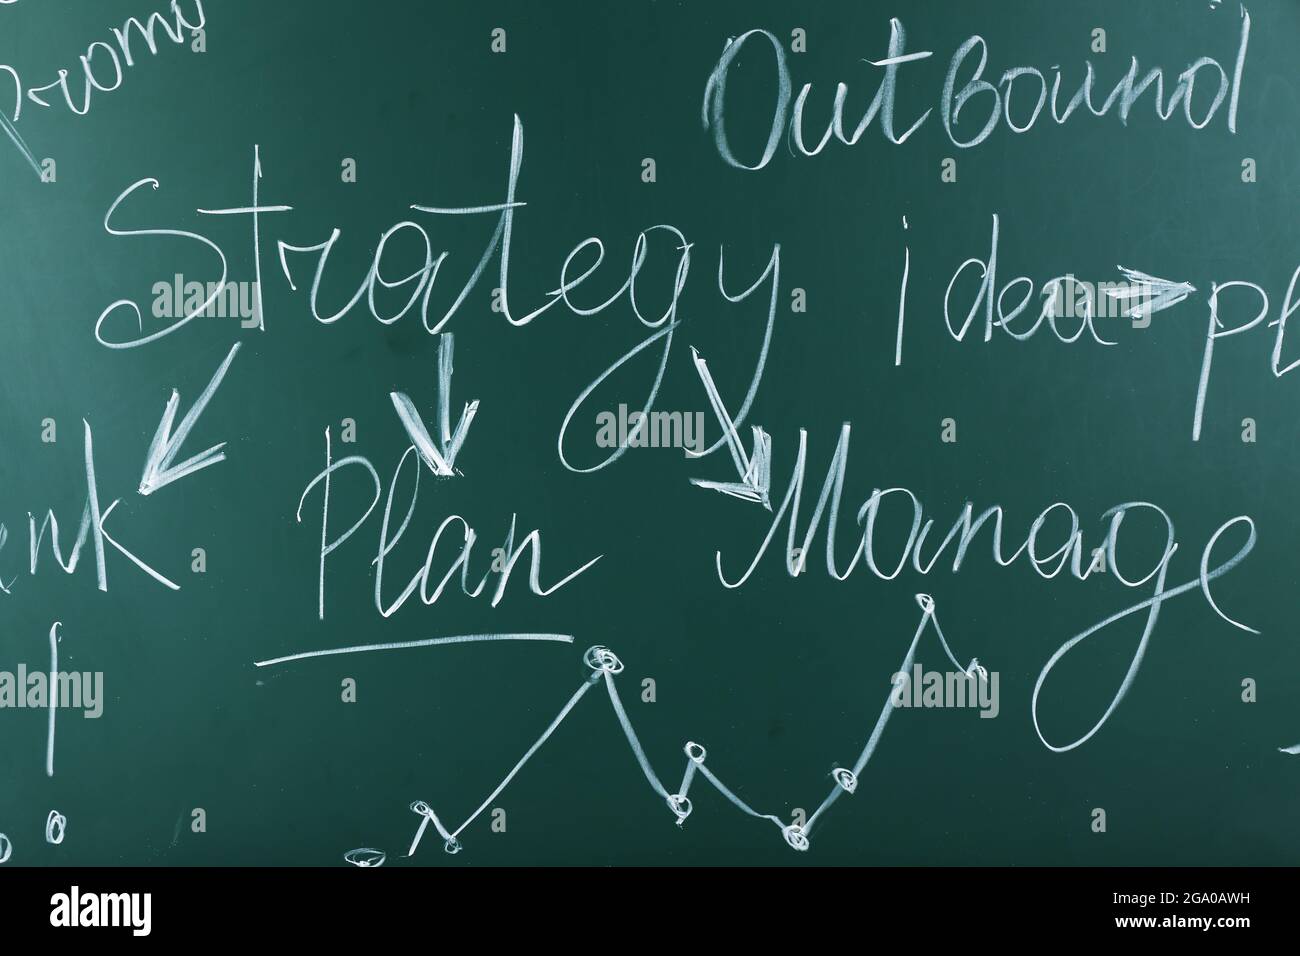 Outbound
Strategy
idea → pl
Plan
Manage
alamy
Image ID: 2GA0AWH
www.alamy.com